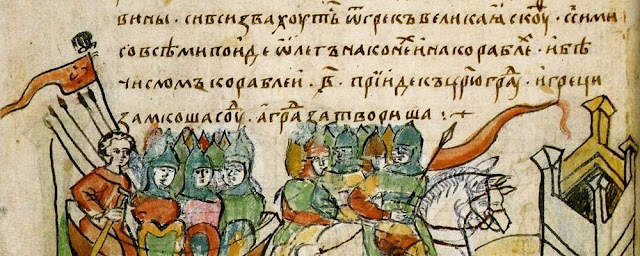 вины · си вси звахоуть ѿ грекъ великаꙗ скоуⷴ · с сими
со всѣми поиде ѡлегъ на конеⷯ и на кораблеⷯ · и бѣ
числомъ кораблеи · в҃ · прїиде к цр҃ю граⷣу · и греци
замкоша соуⷣ · а граⷣ затвориша ⁘